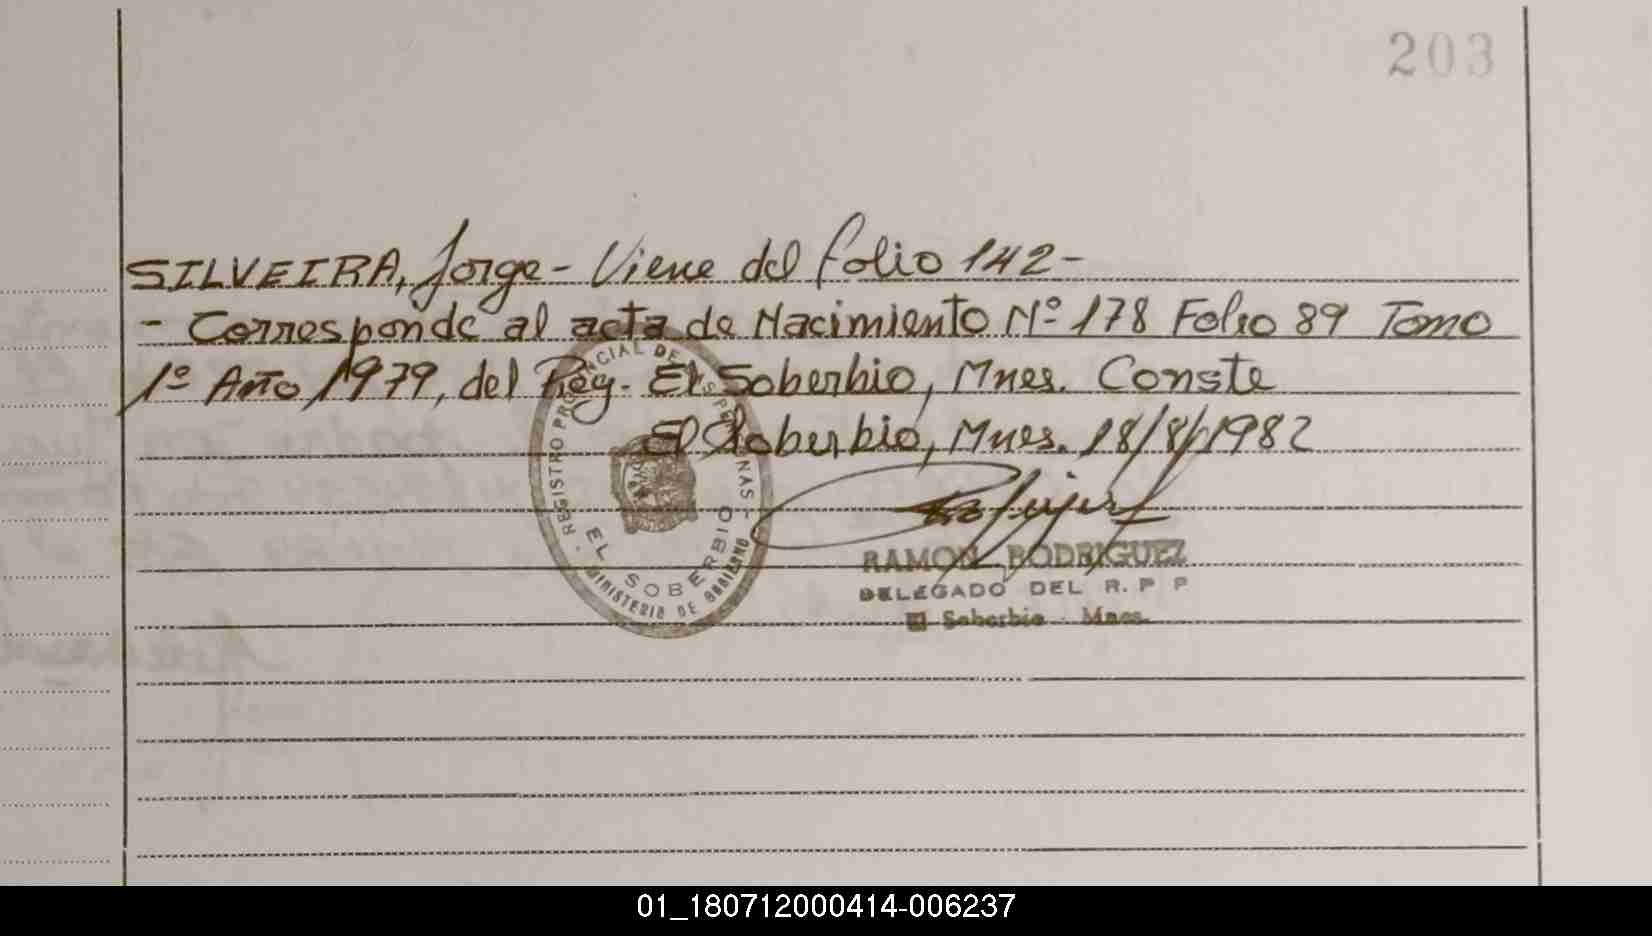 203
SILVEIRA, Jorge - Viene del folio 142 -
- Corresponde al acta de Nacimiento Nº 178 Folio 89 Tomo
1º Año 1979, del Reg. El Soberbio, Mnes. Conste
El Soberbio, Mnes. 18/8/1982
- REGISTRO PROVINCIAL DE LAS PERSONAS -
EL SOBERBIO
MINISTERIO DE GOBIERNO
RAMON RODRIGUEZ
DELEGADO DEL R. P P
El Soberbio - Mnes.
01_180712000414-006237